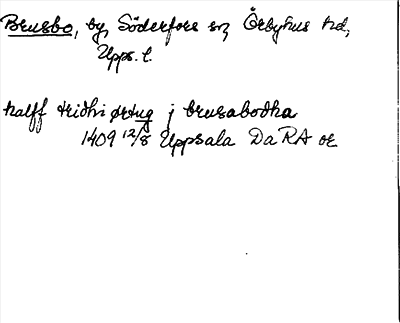 Brusbo, by, Söderfors sn, Örbyhus hd,
Upps. l.
halff tridhi ørtug j brusabodha
1409 12/8 Uppsala DaRA or